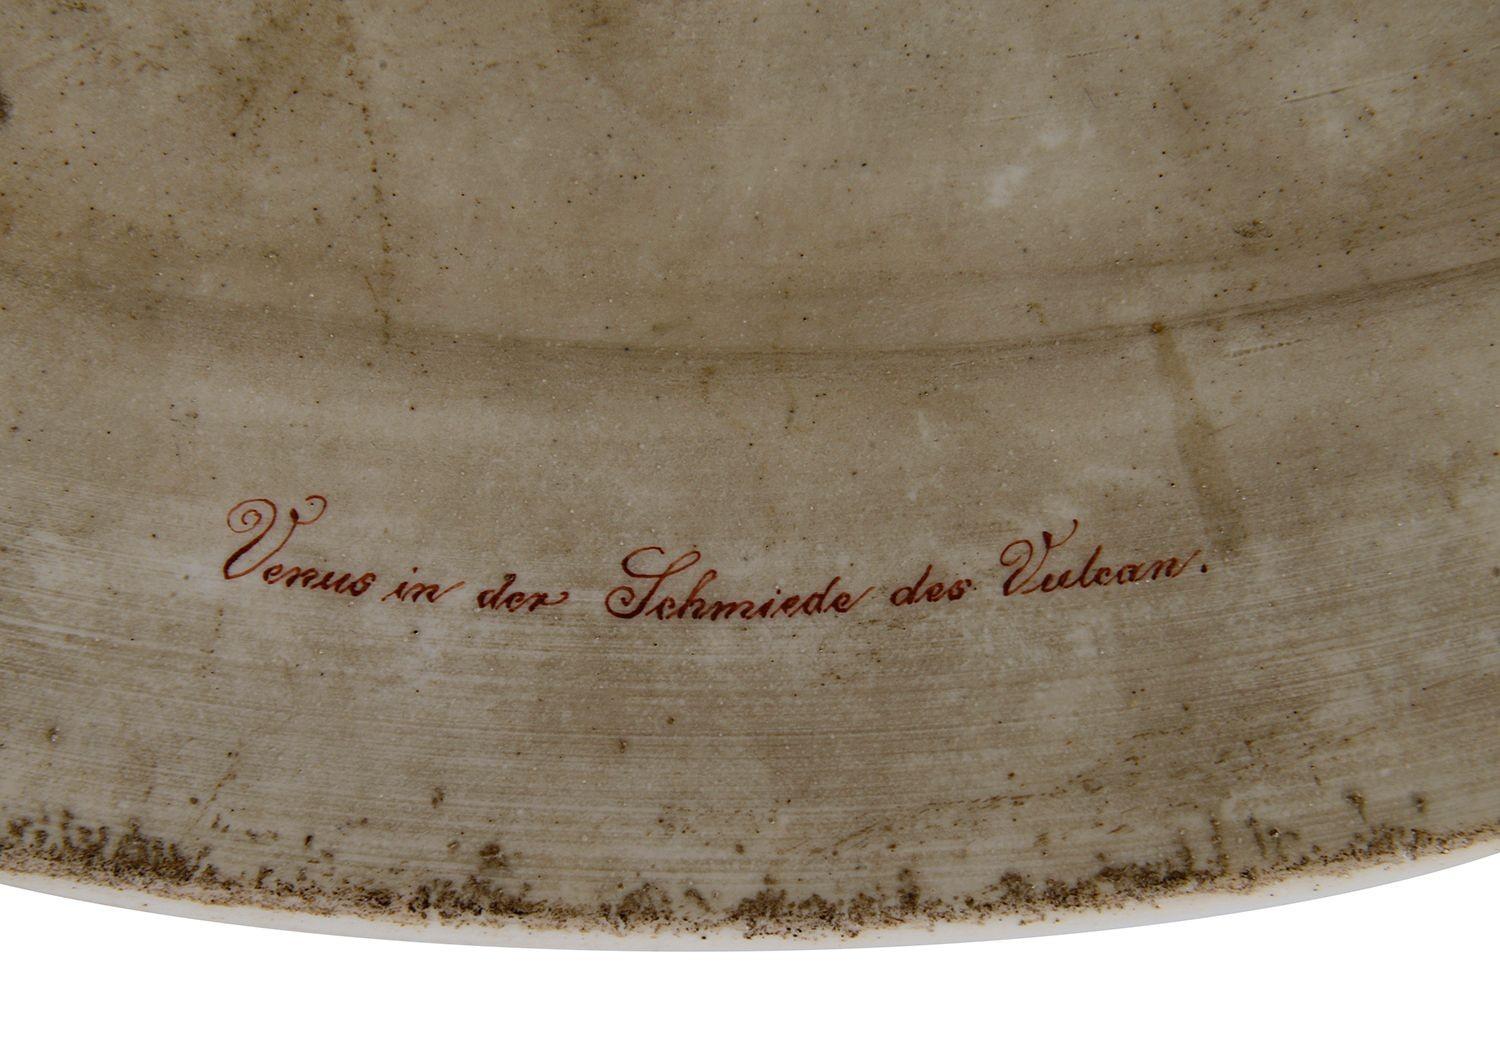 Venus in der Schmiede des Vulcan.